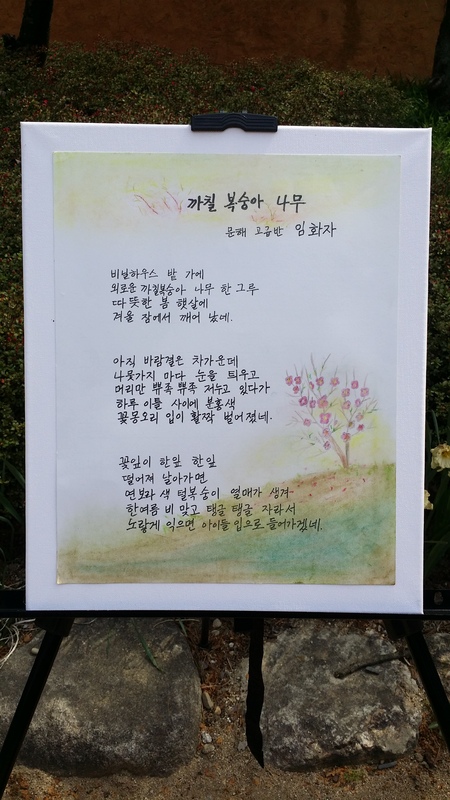 까칠 복숭아 나무
문해 고급반 임화자
비닐하우스 밭 가에
외로운 까칠복숭아 나무 한그루
따뜻한 봄 햇살에
겨울 잠에서 깨어 났네.
아직 바람결은 차가운데
나뭇가지 마다 눈을 틔우고
머리만 쀼족쀼족 저누고 있다가
하루 이틀 사이에 분홍색
꽃몽오리 입이 활짝 벌어졌네.
꽃잎이 한잎 한잎
떨어져 날아가면
연보라 색 털복숭이 열매가 생겨
한여름 비 맞고 탱글 탱글 자라서
노랗게 익으면 아이들 입으로 들어가겠네.